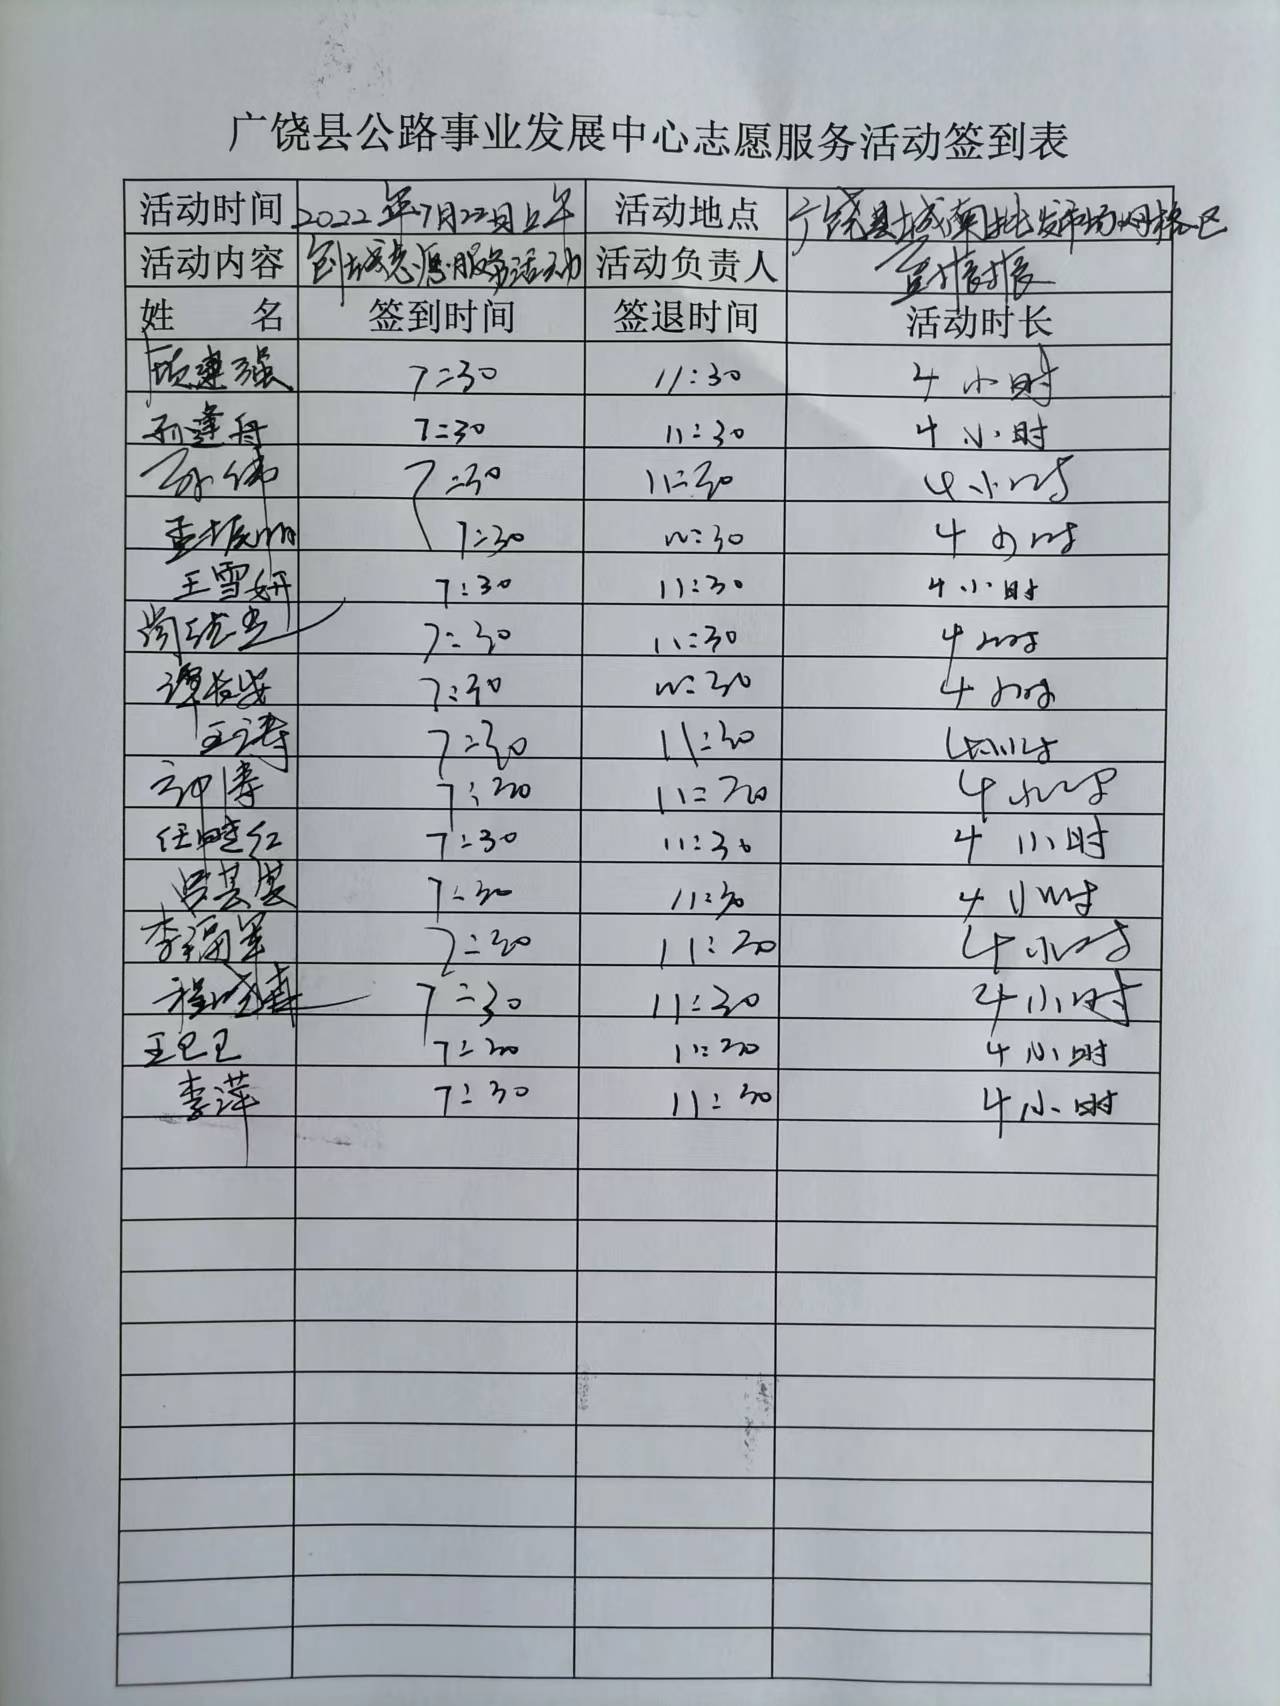 广饶县公路事业发展中心志愿服务活动签到表
活动时间 2022年7月22日上午 活动地点 广饶县城南批发市场网格区
活动内容 创城志愿服务活动 活动负责人
姓 名 签到时间 签退时间 活动时长
项建强 7:30 11:30 4小时
孙逢舟 7:30 11:30 4小时
孙伟 7:30 11:30 4小时
7:30 11:30 4小时
王雪妍 7:30 11:30 4小时
7:30 11:30 4小时
7:30 11:30 4小时
王涛 7:30 11:30 4小时
7:30 11:30 4小时
任晓红 7:30 11:30 4小时
7:30 11:30 4小时
李福军 7:30 11:30 4小时
程晓春 7:30 11:30 4小时
王卫卫 7:30 11:30 4小时
李萍 7:30 11:30 4小时